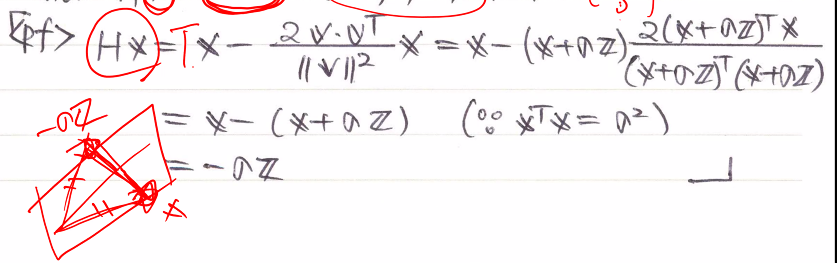 <pf> Hx = Ix - 2v·vᵀ/||v||² x = x - (x+az) 2(x+az)ᵀx/(x+az)ᵀ(x+az)
= x - (x+az) (∵ xᵀx = a²)
= -az ┘
-az
x